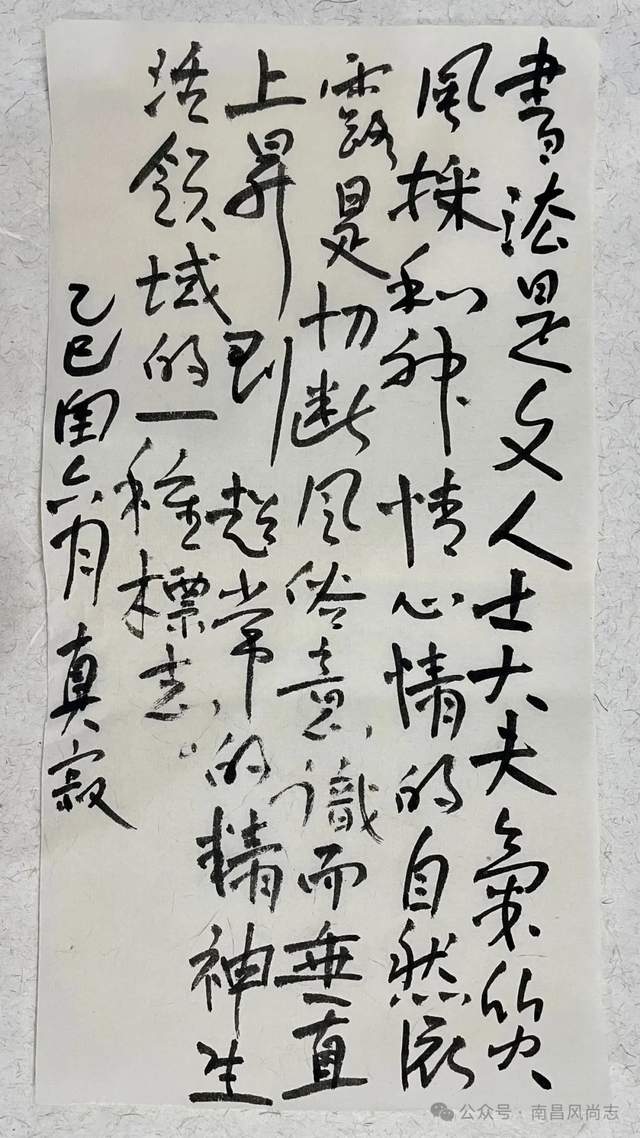 書法是文人士大夫氣質
風採和神情心情的自然流
露是切断风俗意識而垂直
上昇到超常的精神生
活領域的一種標志
乙巳閏六月真寂
公众号·南昌风尚志